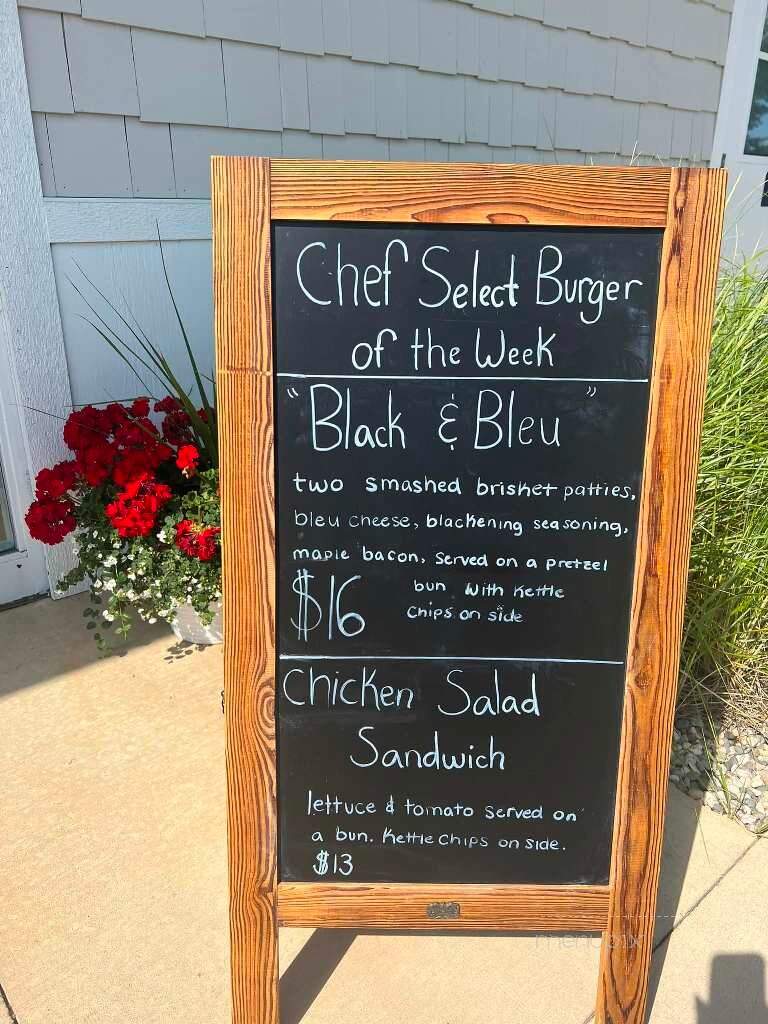 Chef Select Burger
of the Week
"Black & Bleu"
two smashed brisket patties,
bleu cheese, blackening seasoning,
maple bacon, served on a pretzel
bun with kettle
$16
chips on side
Chicken Salad
Sandwich
lettuce & tomato served on
a bun. Kettle chips on side.
$13
menupix